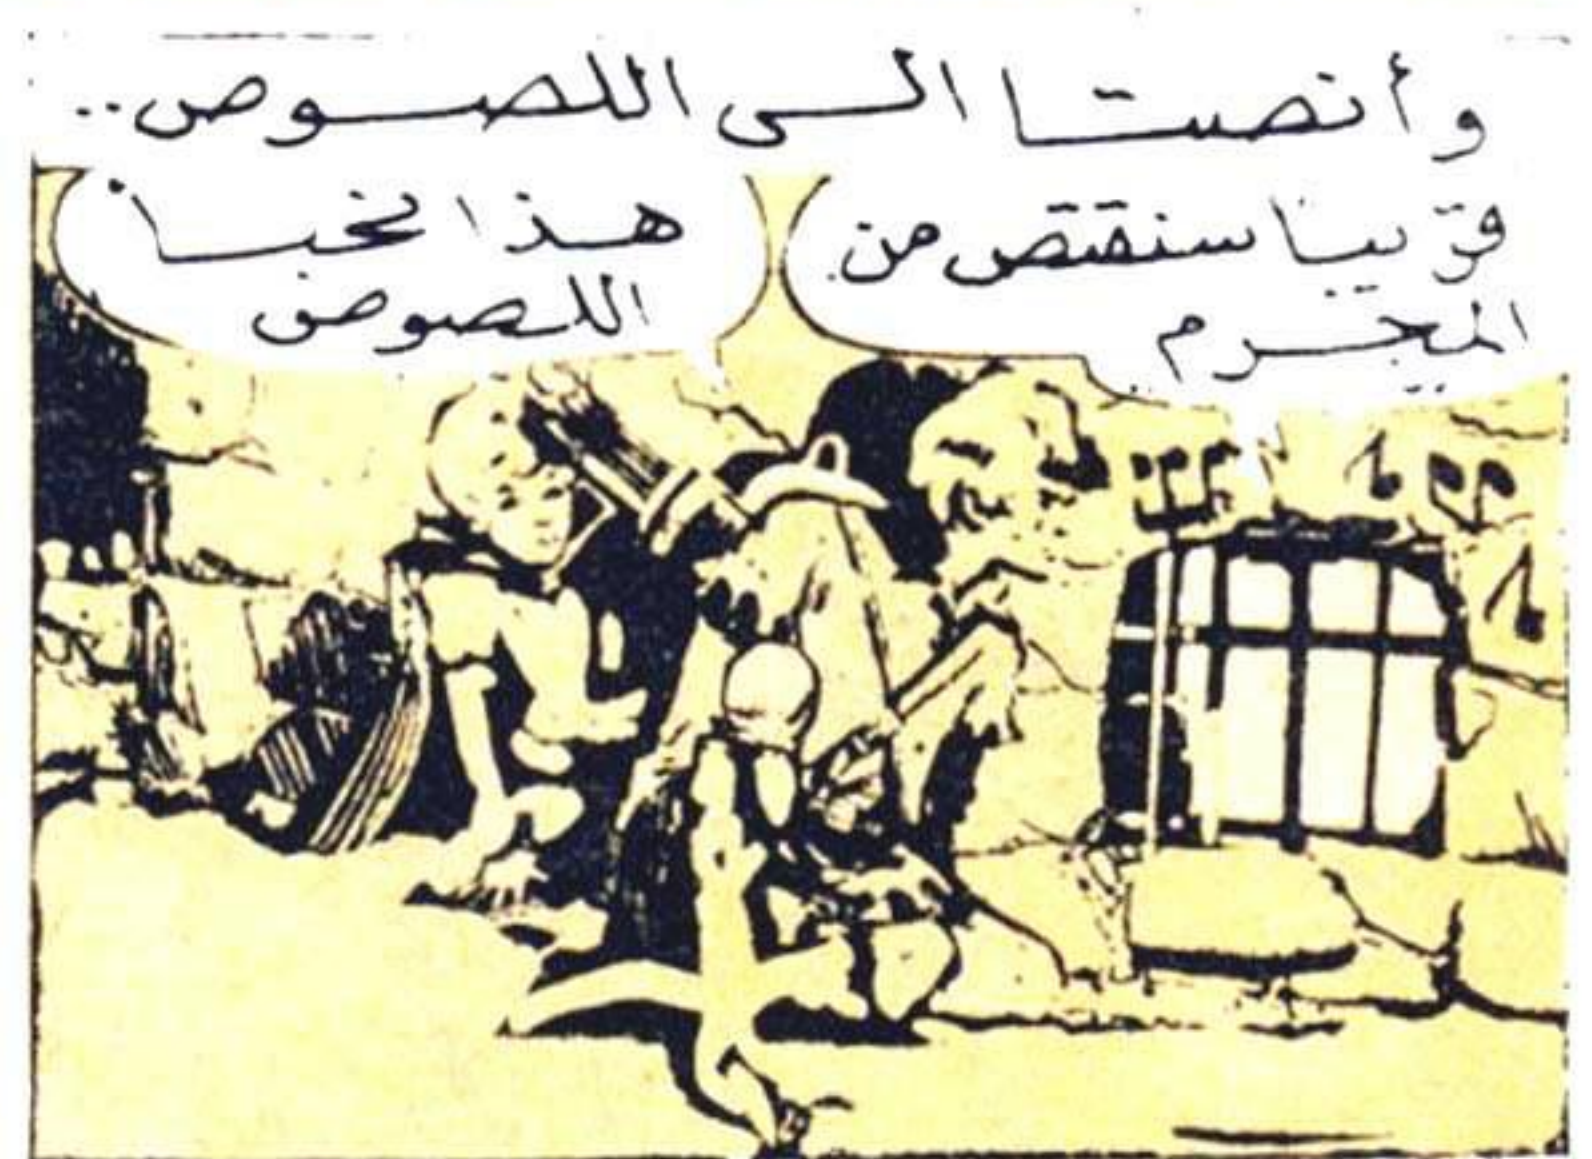 وأنصتا الى اللصوص..
قريبا سنقتص من
المجرم..
هذا مخبأ
اللصوص